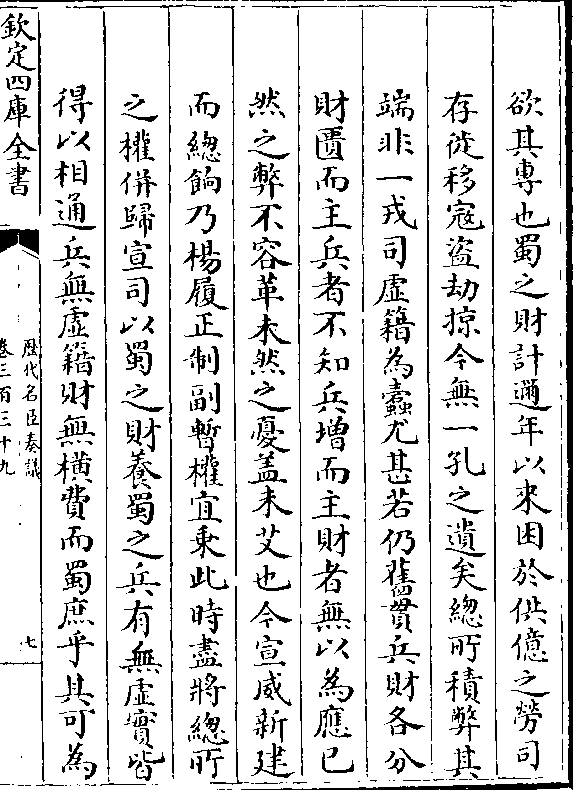 欲其專也蜀之財計邇年以來困於供億之勞司
存徙移寇盜劫掠今無一孔之遺矣總所積弊其
端非一戎司虛籍為蠧尤甚若仍舊貫兵財各分
財匱而主兵者不知兵增而主財者無以為應已
然之弊不容革未然之憂盖未艾也今宣威新建
而總餉乃楊履正制副暫權宜乗此時盡將總所
之權併歸宣司以蜀之財養蜀之兵有無虛實皆
得以相通兵無虛籍財無横費而蜀庶乎其可為
欽定四庫全書
歴代名臣奏議
卷三百三十九
七